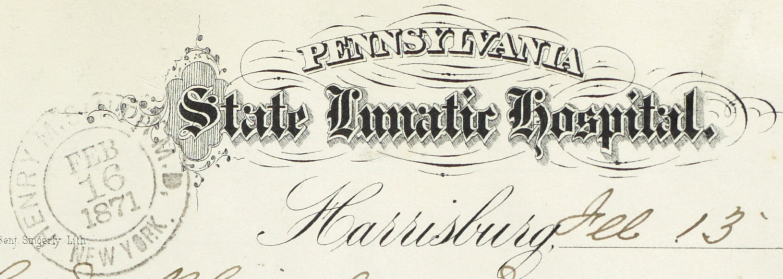 PENNSYLVANIA
State Lunatic Hospital.
HENRY M.D.
FEB
16
1871
NEW YORK.
Benj. Singerly Lith.
Harrisburg, Feb 13